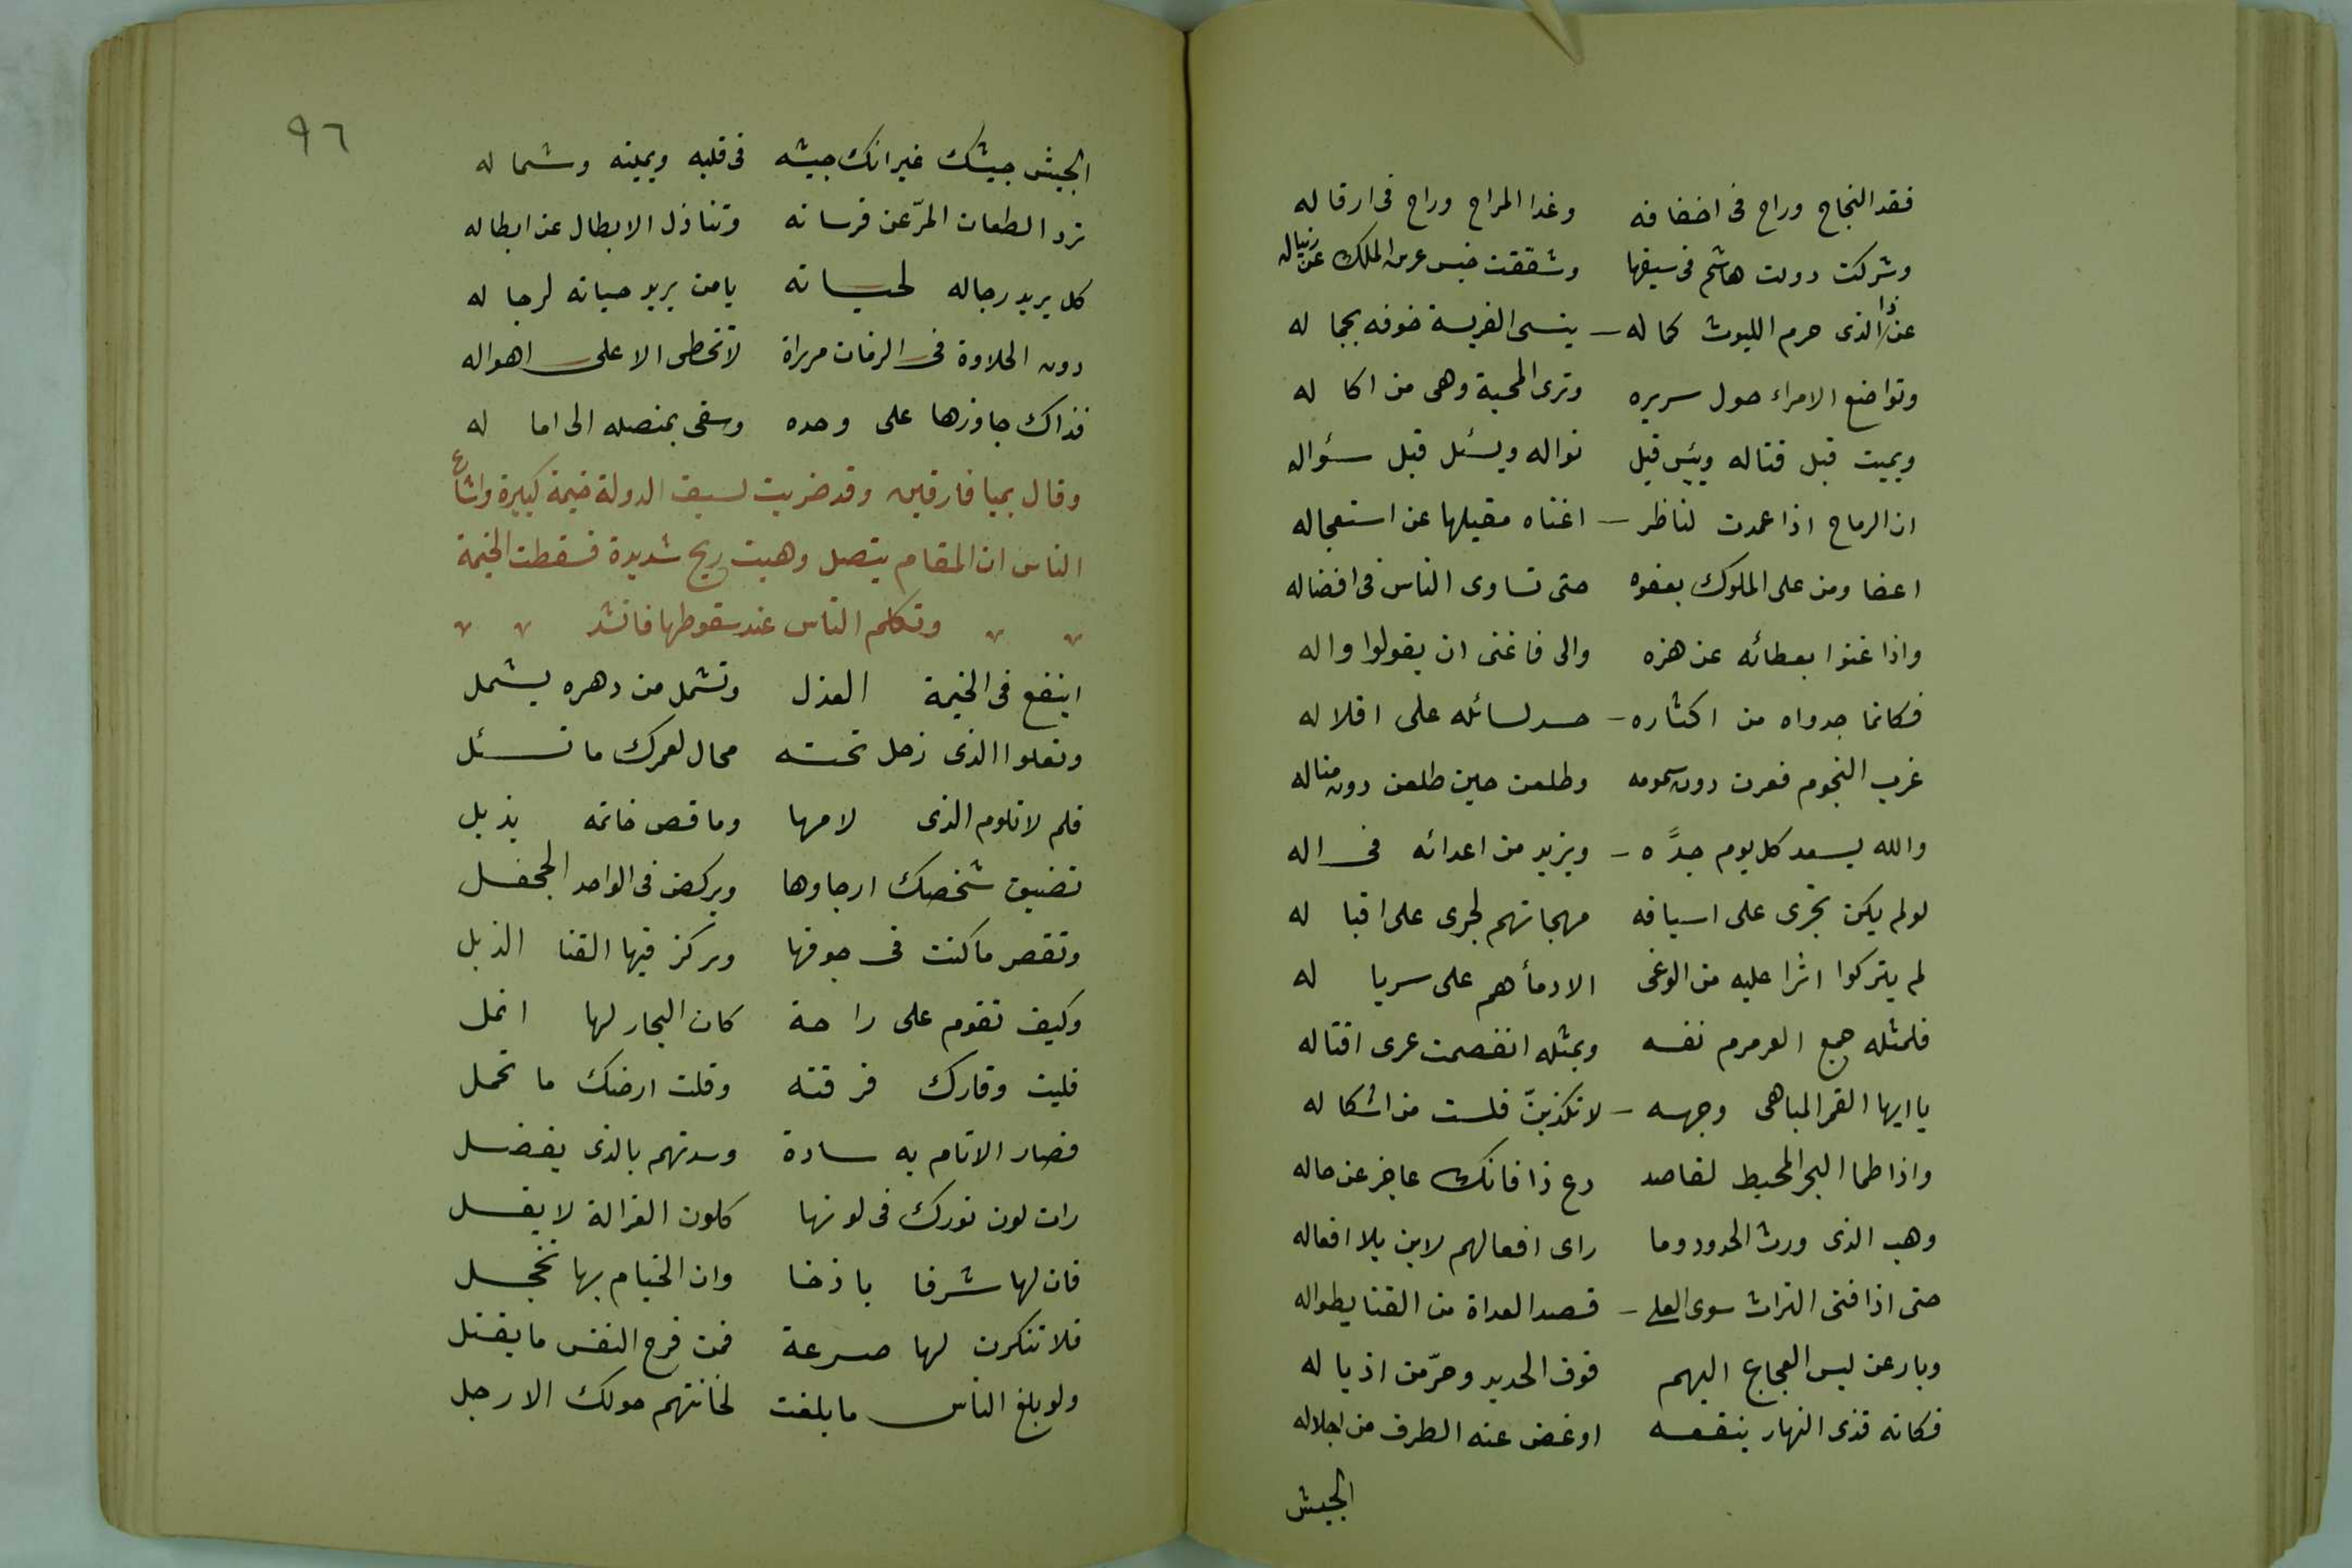 فقد النجاح وراح فى اخفافه وغدا المراح وراح فى ارقاله
وشركت دولت هاشم فى سيفها وشققت خيس عرس الملك عن ريباله
عن ذا الذى حرم الليوث كماله ينسى الفريسة خوفه بجماله
وتواضع الامراء حول سريره وترى المحبة وهى من اكاله
ويميت قبل قتاله ويبس قبل نواله ويسئل قبل سؤاله
ان الرماح اذا عمدت لناظر اغناه مقبلها عن استعجاله
اعضا ومن على الملوك بعفوه حتى تساوى الناس فى افضاله
واذا غنوا بعطائه عن هزه والى فاغنى ان يقولوا واله
فكانما جدواه من اكثاره حسد لسائله على اقلاله
غرب النجوم فغرن دون سمومه وطلعن حين طلعن دون مناله
والله يسعد كل يوم جدّه ويزيد من اعدائه فى اله
لو لم يكن تجرى على اسيافه مهجاتهم لجرى على اقباله
لم يتركوا اثرا عليه من الوغى الا دمأهم على سرباله
فلمثله جمع العرمرم نفسه وبمثله انفصمت عرى اقتاله
يا ايها القمر المباهى وجهه لا تكذبنّ فلست من اشكاله
واذا طما البحر المحيط لقاصد دع ذا فانك عاجز عن حاله
وهب الذى ورث الحدود وما راى افعالهم لابن بلا افعاله
حتى اذا فنى التراث سوى العلى قصد العداة من القنا بطواله
وبارعن لبس العجاج اليهم فوق الحديد وحرّ من اذياله
فكانه قذى النهار بنقعه او غض عنه الطرف من اجلاله
الجيش
٩٦
الجيش جيشك غير انك جيشه فى قلبه ويمينه وشماله
ترد الطعان المرّ عن فرسانه وتنازل الابطال عن ابطاله
كل يريد رجاله لحياته يا من يريد حياته لرجاله
دون الحلاوة فى الزمان مرراة لا تخطى الا على اهواله
فذاك جاوزها على وحده وسقى بمنصله الى اماله
وقال بميا فارقين وقد ضربت لسيف الدولة خيمة كبيرة واشاع
الناس ان المقام يتصل وهبت ريح شديدة فسقطت الخيمة
وتكلم الناس عند سقوطها فانشد
اينفع فى الخيمة العذل وتشمل من دهره يشمل
وتعلوا الذى زحل تحته محال لعمرك ما تسئل
فلم لا تلوم الذى لامها وما قص خاتمه يذبل
تضيق شخصك ارجاوها ويركض فى الواحد الجحفل
وتقصر ما كنت فى جوفها ويركز فيها القنا الذبل
وكيف تقوم على راحة كان البحار لها انمل
فليت وقارك فرقته وقلت ارضك ما تحمل
فصار الانام به سادة وسدتهم بالذى يفضل
رات لون نورك فى لونها كلون الغزالة لا يغسل
فان لها شرفا باذخا وان الخيام بها تخجل
فلا تنكرن لها صرعة فمن فرح النفس ما يقتل
ولو بلغ الناس ما بلغت لخانتهم حولك الارجل